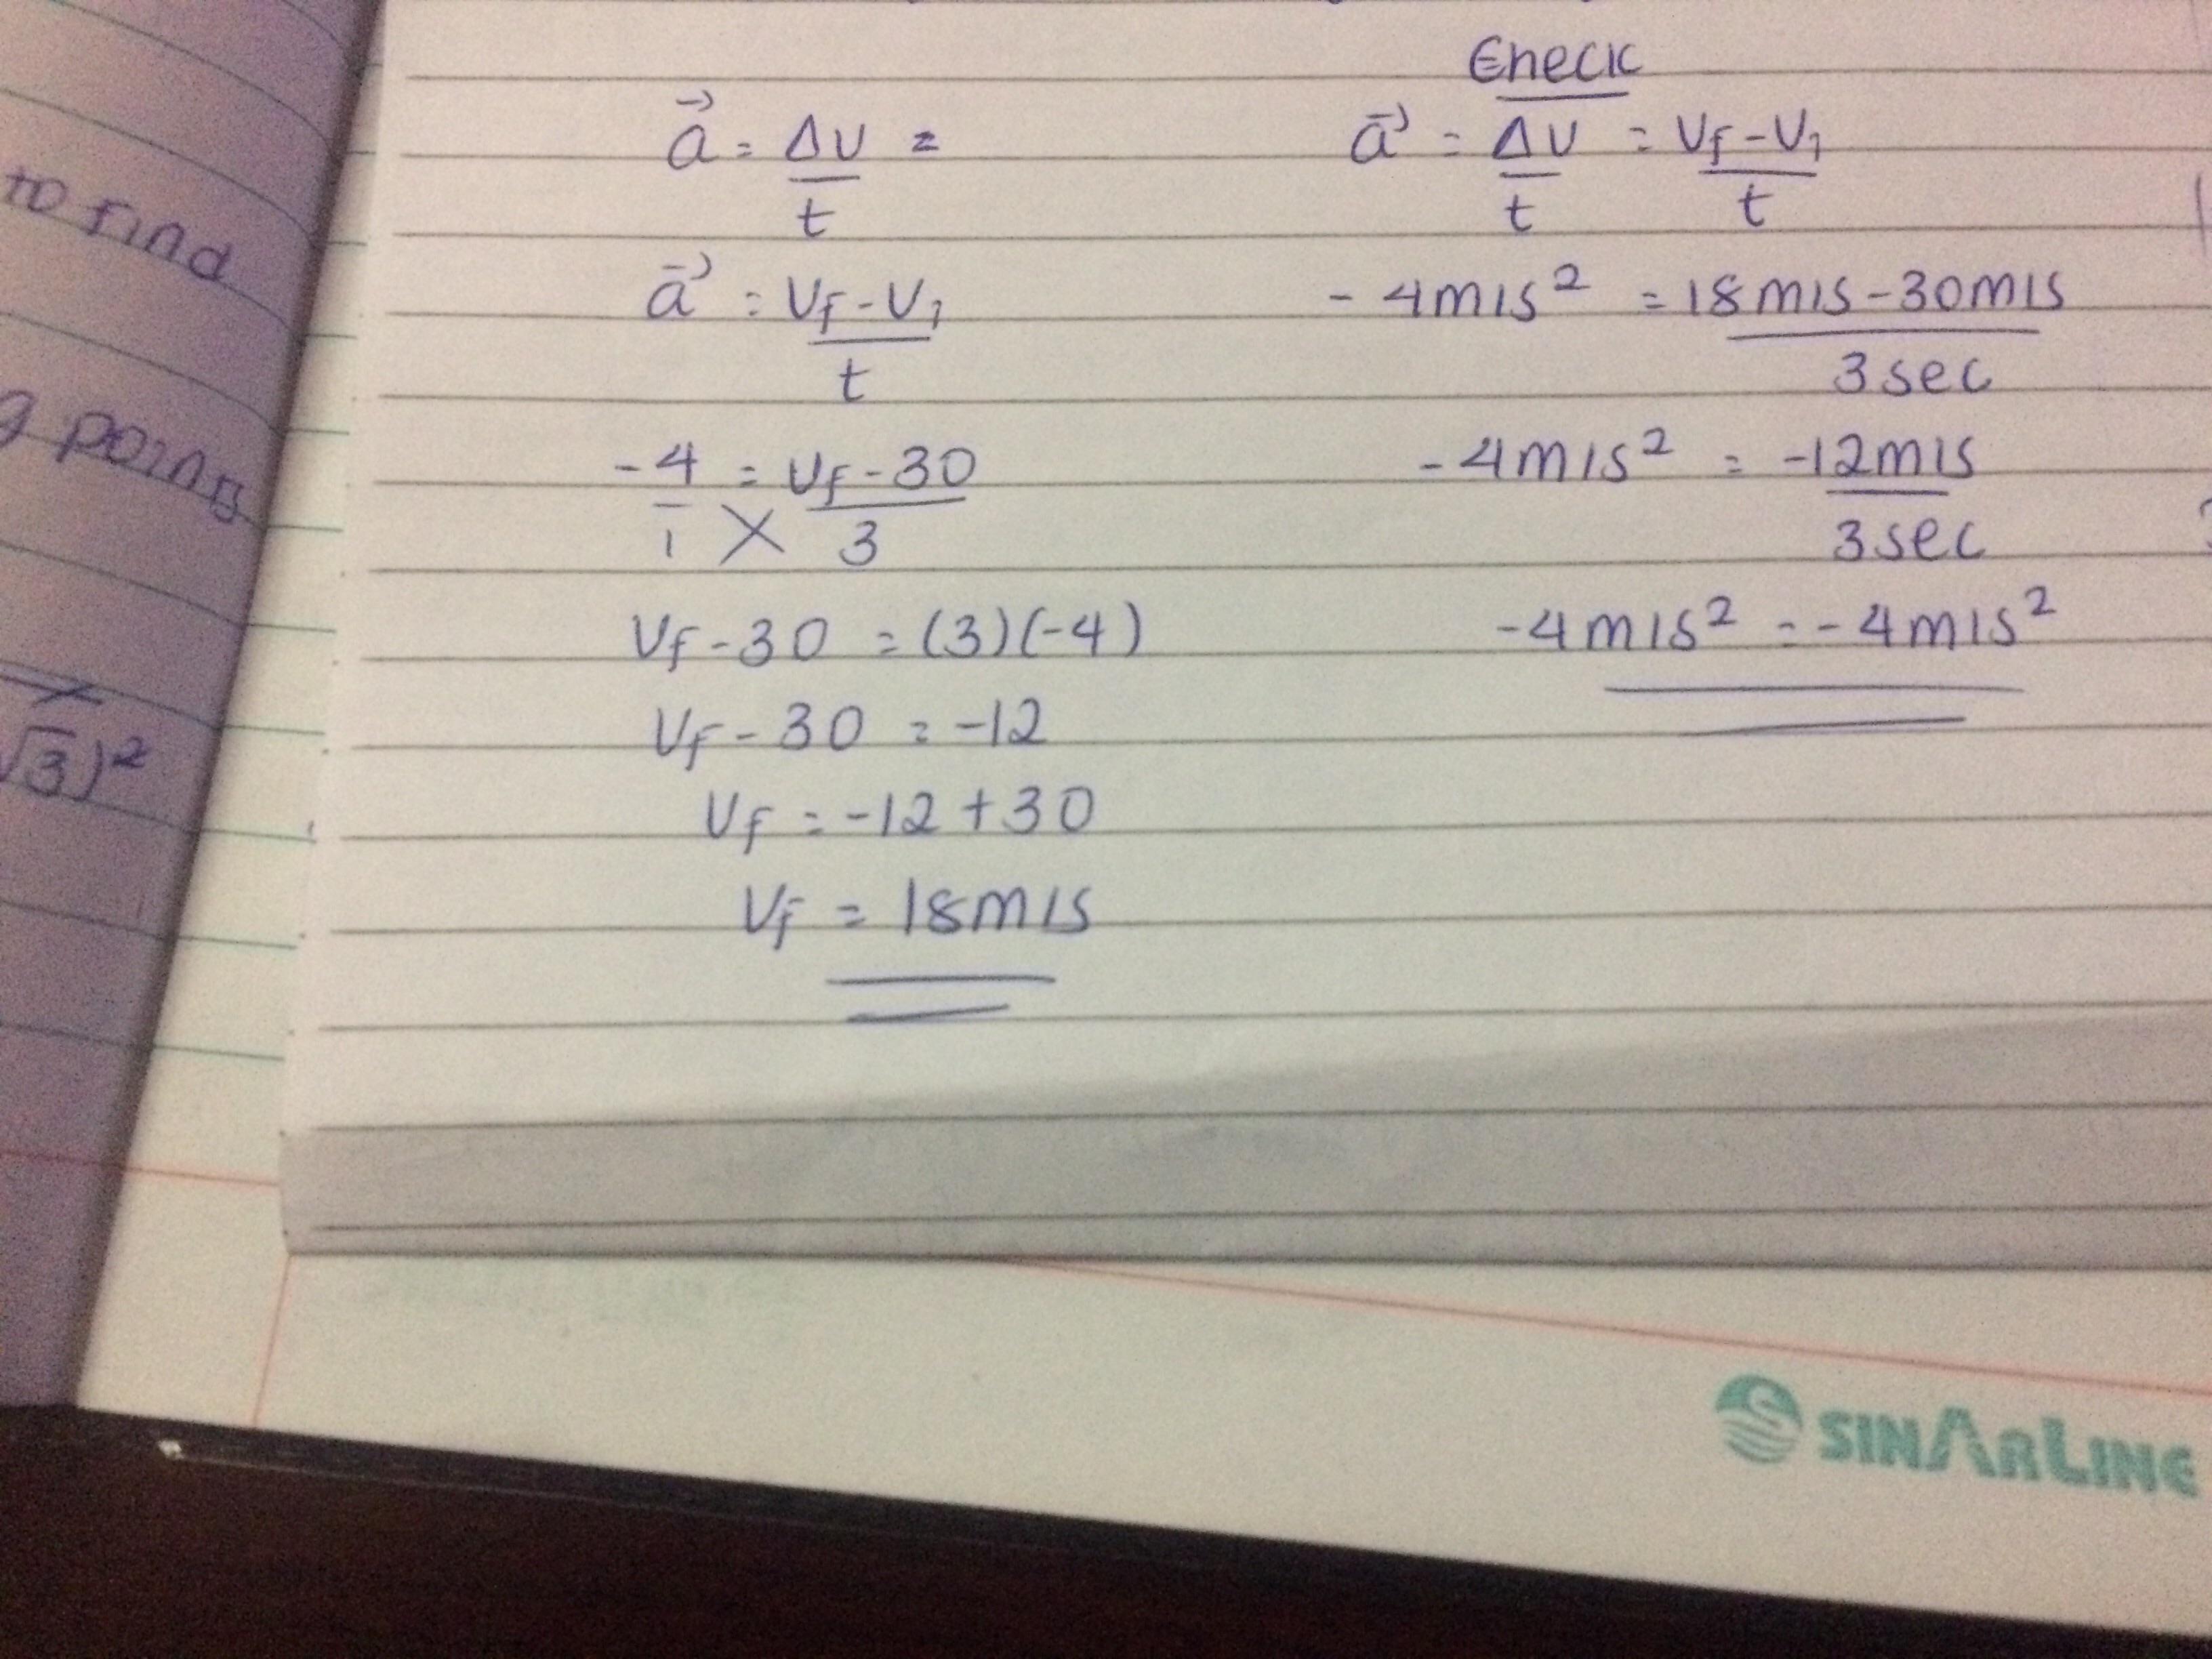 to find
g points
√3)²
a⃗ = Δv =
t
a⃗ = Vf - V1
t
-4 = Vf - 30
1 X 3
Vf - 30 = (3)(-4)
Vf - 30 = -12
Vf = -12 + 30
Vf = 18m/s
Check
a⃗ = Δv = Vf - V1
t t
-4m/s² = 18m/s - 30m/s
3sec
-4m/s² = -12m/s
3sec
-4m/s² = -4m/s²
SINARLINE